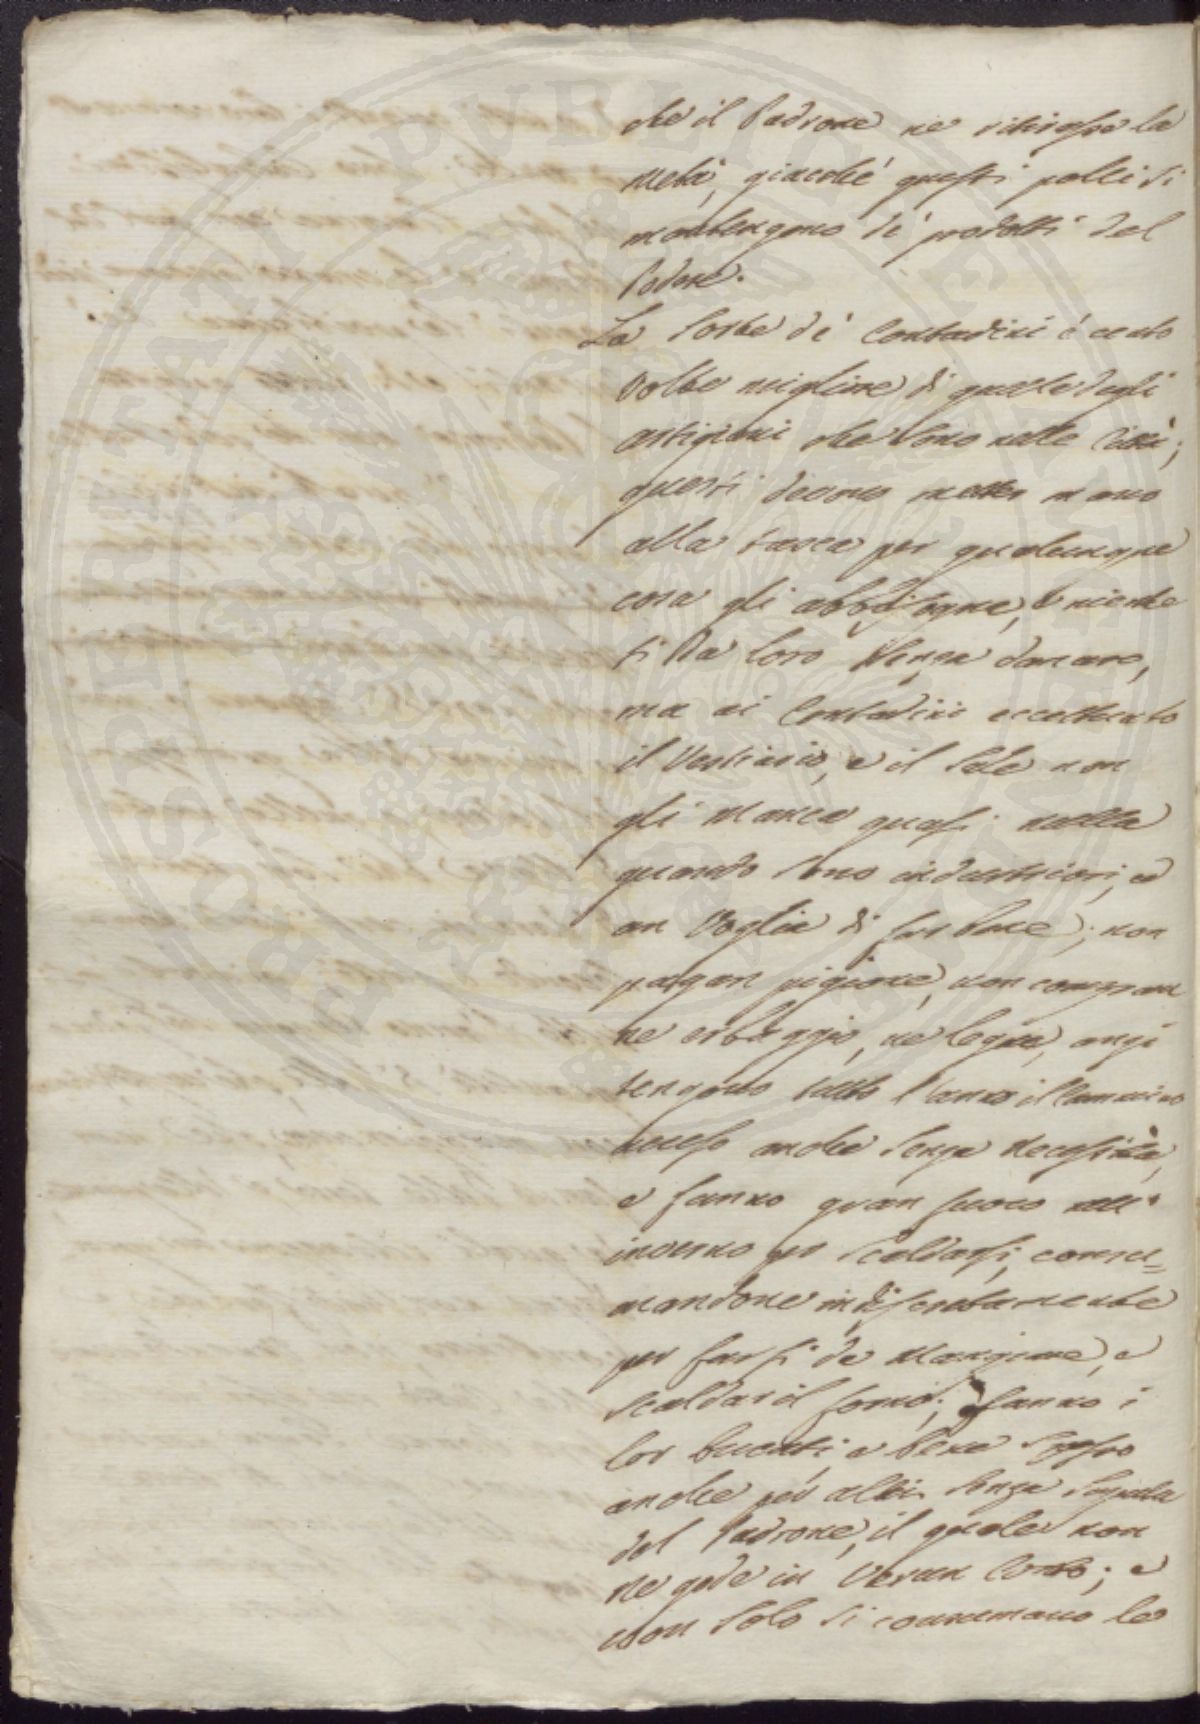 che il Padrone ne ritirasse la
metà, giacché questi polli si
mantengono de' prodotti del
Podere.
La sorte de' Contadini è cento
volte migliore di quella degli
artigiani che sono nelle Città;
questi devono metter mano
alla tasca per qualunque
cosa gli abbisogna, e niente
si dà loro senza danaro,
ma ai Contadini eccettuato
il Vestiario, e il Sale non
gli manca quasi nulla
quando sono industriosi, ed
an Voglia di far bene; non
pagan pigione, non compran
ne erbaggio, ne legna, anzi
tengono tutto l'anno il Cammino
acceso anche senza necessità,
e fanno gran fuoco nell'
inverno per scaldarsi, consu=
mandone indiscretamente
per farsi da Mangiare, e
scaldar il forno; fanno i
lor bucati, e bene spesso
anche per altri senza saputa
del Padrone, il quale non
ne gode in verun Conto; e
non solo si consumano le
PROSPERITATI PUBLICAE AUGENDAE